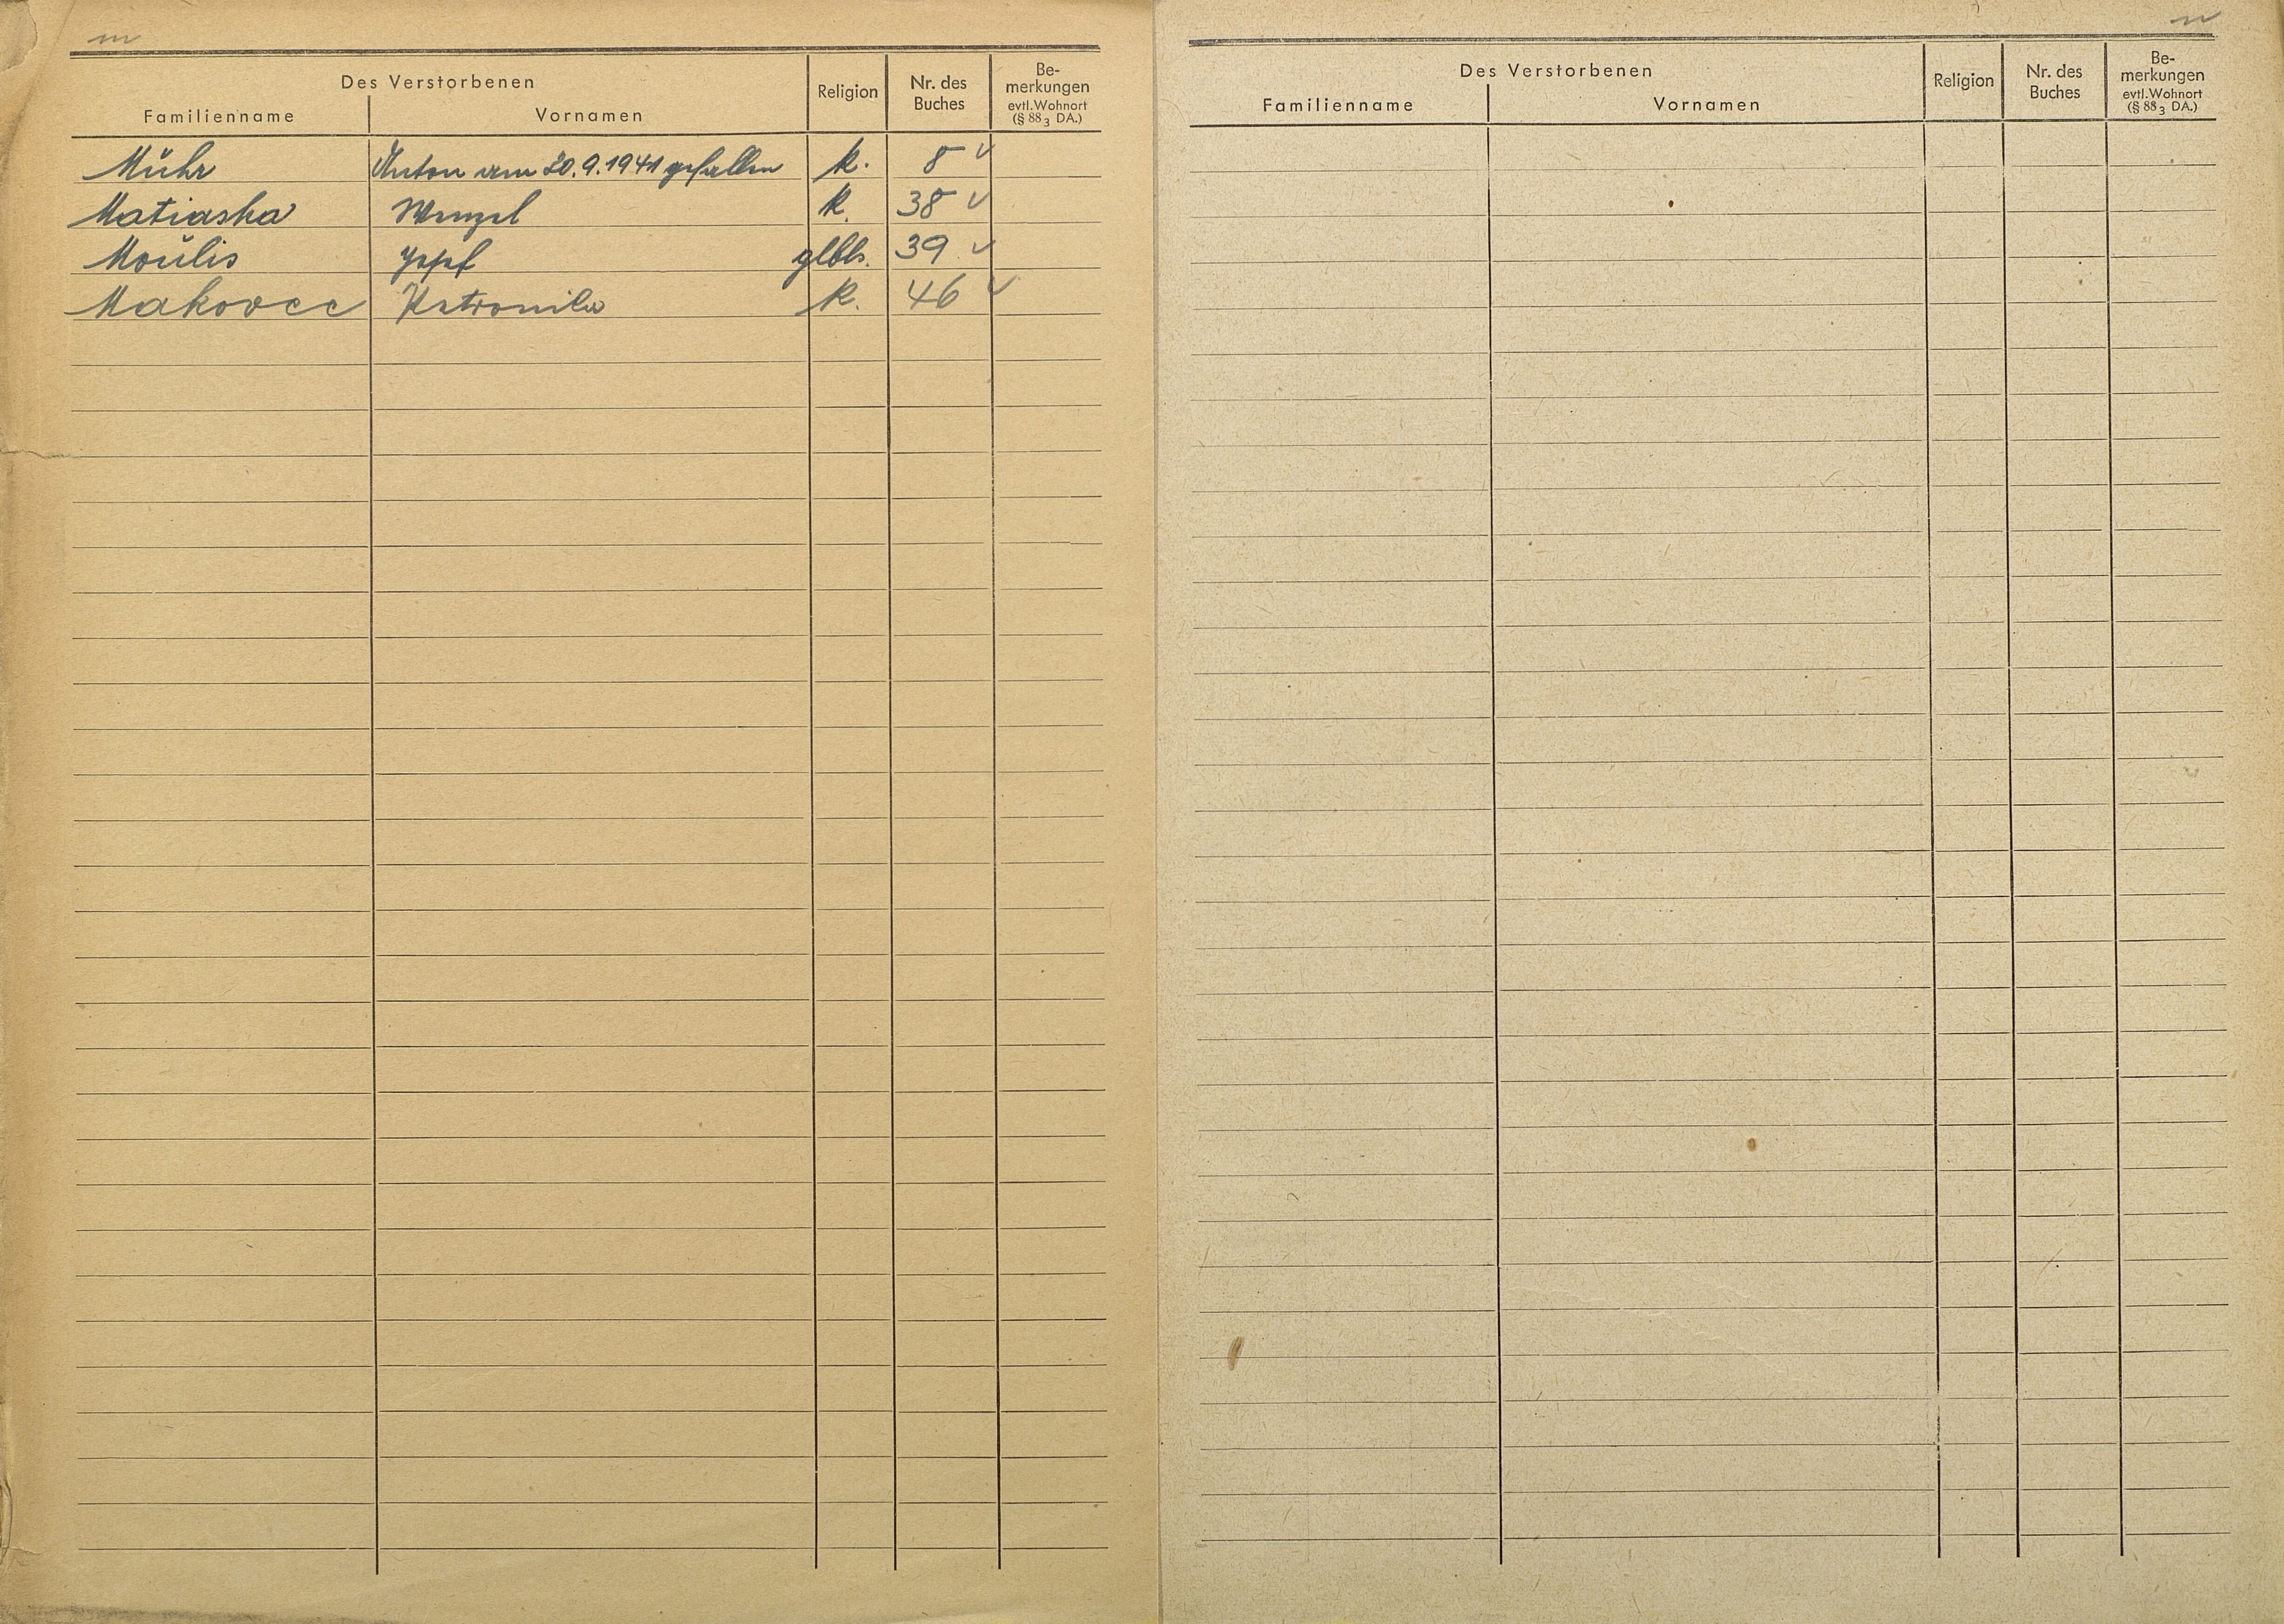 m
Des Verstorbenen
Familienname
Vornamen
Religion
Nr. des
Buches
Be-
merkungen
evtl. Wohnort
(§ 88 3 DA.)
Mühr Anton am 20.9.1941 gefallen k. 8 ✓
Matiaska Wenzel k. 38 ✓
Moulis Josef glbls. 39 ✓
Makovec Petronila k. 46 ✓
n
Des Verstorbenen
Familienname
Vornamen
Religion
Nr. des
Buches
Be-
merkungen
evtl. Wohnort
(§ 88 3 DA.)